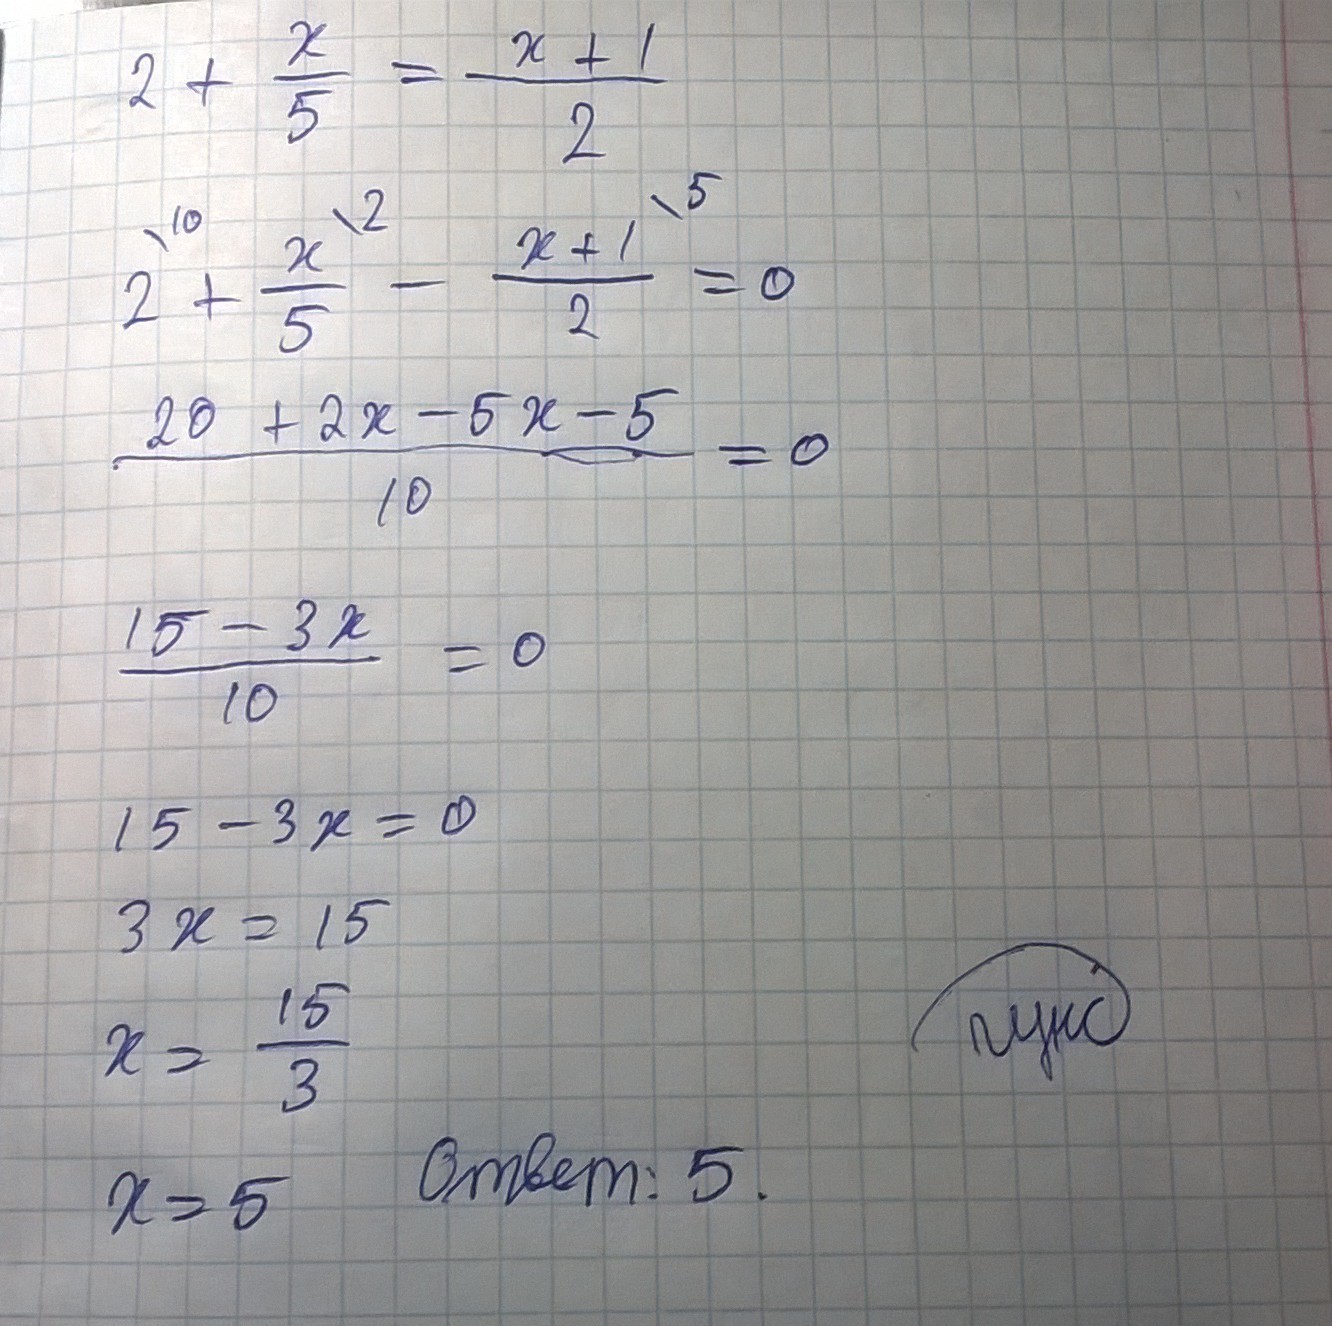 2 + x/5 = (x + 1)/2
2\10 + x/5\2 − (x + 1)/2\5 = 0
(20 + 2x − 5x − 5)/10 = 0
(15 − 3x)/10 = 0
15 − 3x = 0
3x = 15
x = 15/3
x = 5 Ответ: 5.